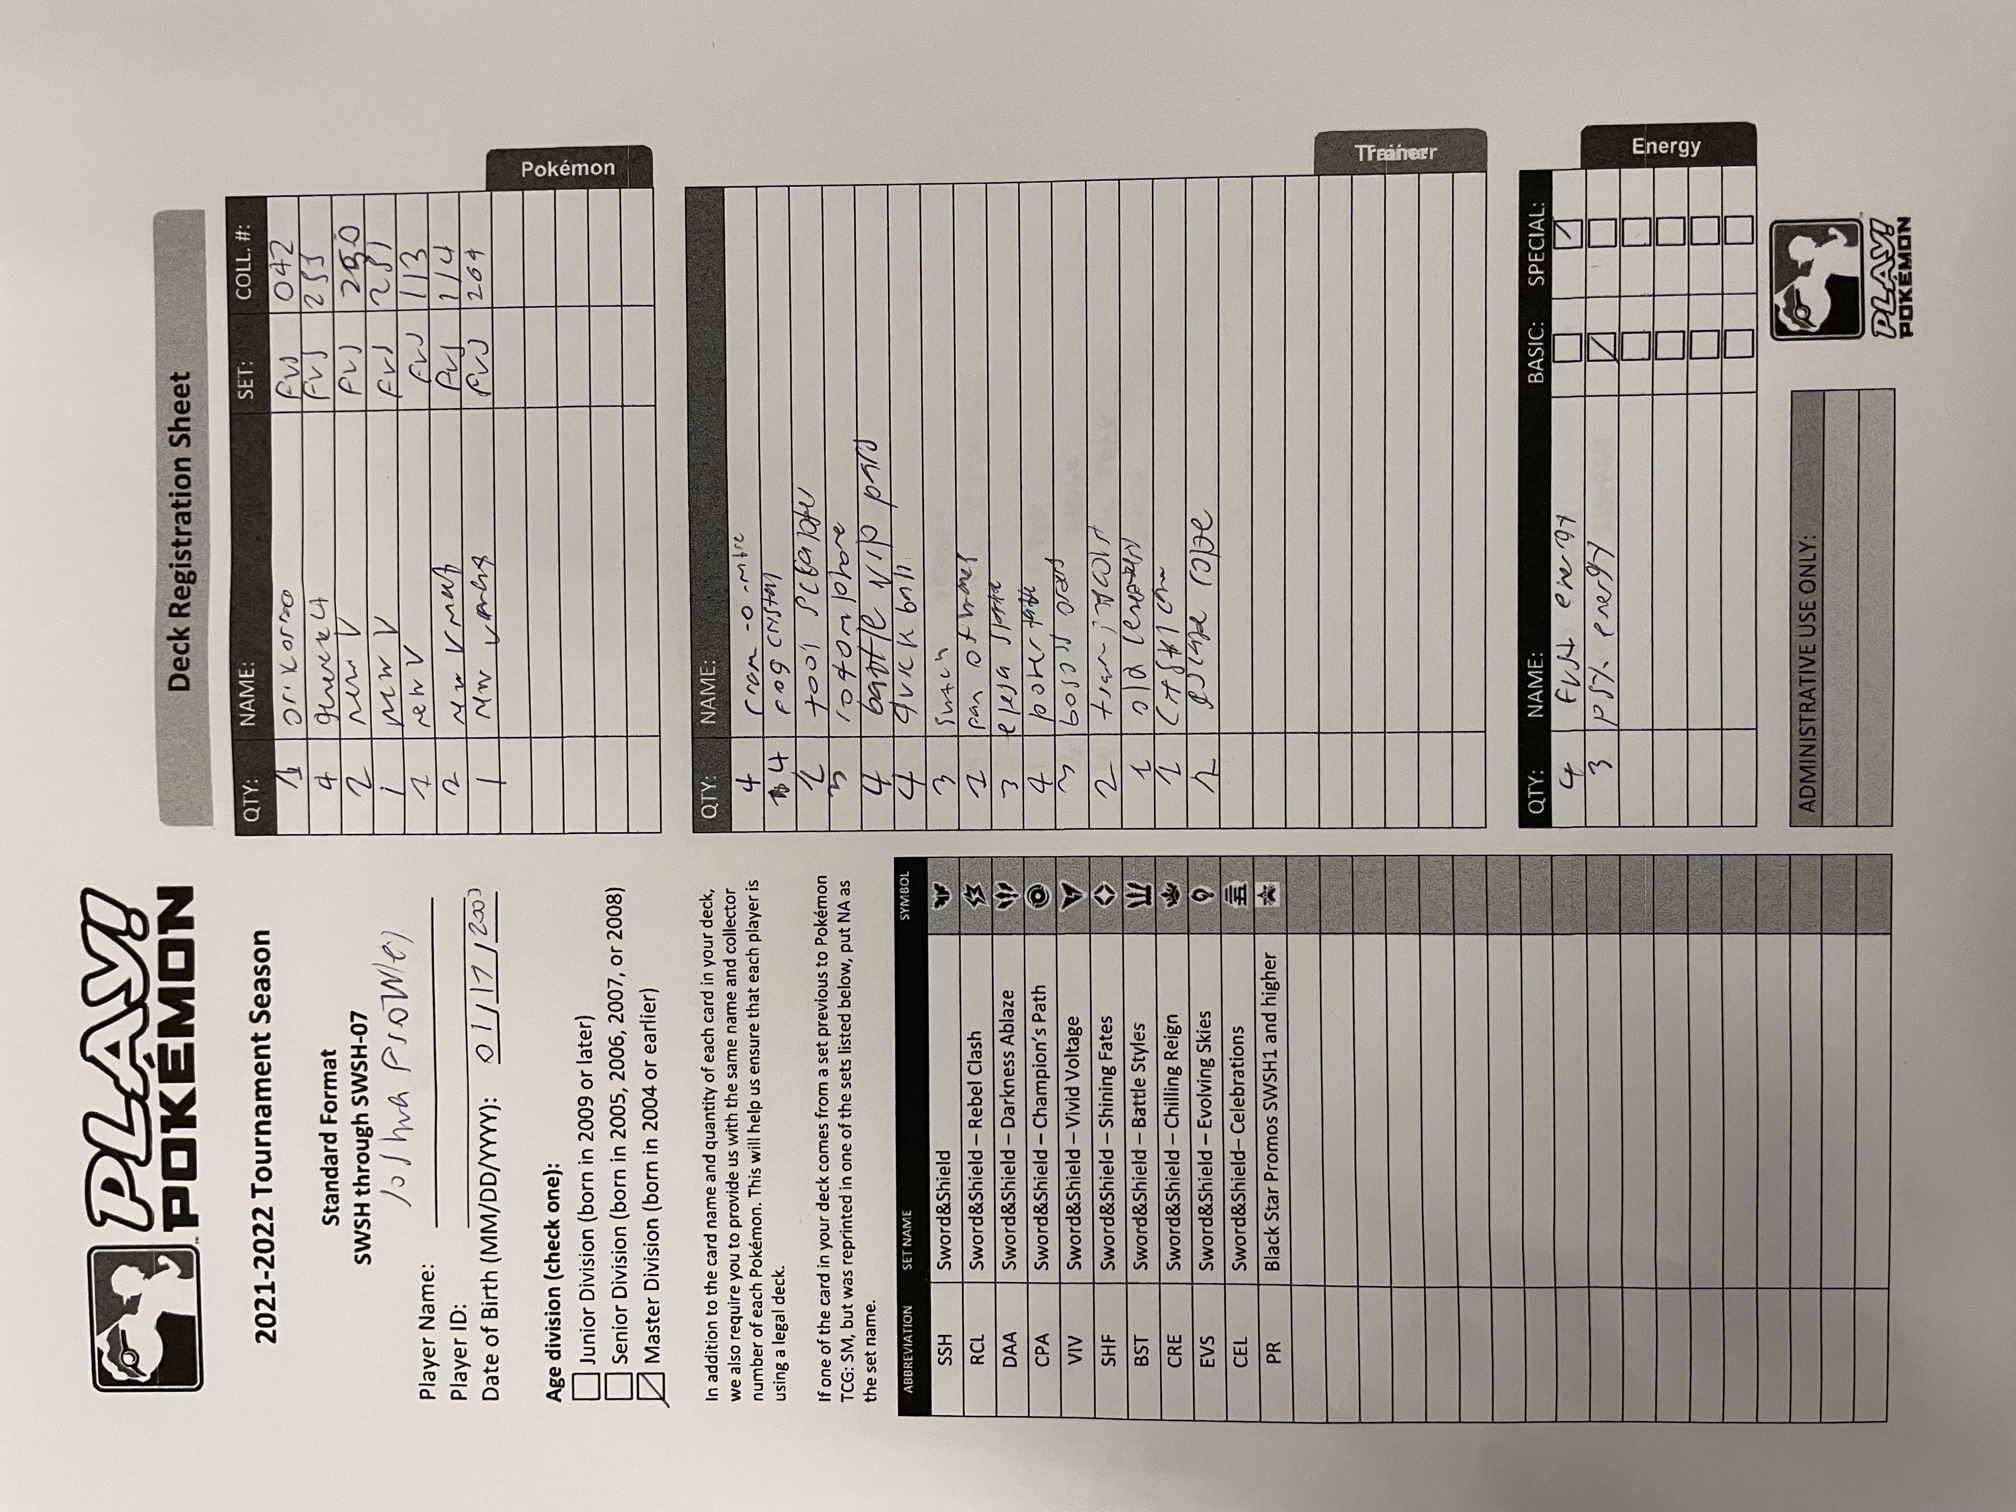 PLAY!
POKÉMON
Deck Registration Sheet
2021-2022 Tournament Season
Standard Format
SWSH through SWSH-07
Joshua
Player Name:
Player ID:
Date of Birth (MM/DD/YYYY): 01/17/2003
Age division (check one):
Junior Division (born in 2009 or later)
Senior Division (born in 2005, 2006, 2007, or 2008)
Master Division (born in 2004 or earlier)
In addition to the card name and quantity of each card in your deck,
we also require you to provide us with the same name and collector
number of each Pokémon. This will help us ensure that each player is
using a legal deck.
If one of the card in your deck comes from a set previous to Pokémon
TCG: SM, but was reprinted in one of the sets listed below, put NA as
the set name.
ABBREVIATION SET NAME SYMBOL
SSH Sword&Shield
RCL Sword&Shield – Rebel Clash
DAA Sword&Shield – Darkness Ablaze
CPA Sword&Shield – Champion's Path
VIV Sword&Shield – Vivid Voltage
SHF Sword&Shield – Shining Fates
BST Sword&Shield – Battle Styles
CRE Sword&Shield – Chilling Reign
EVS Sword&Shield – Evolving Skies
CEL Sword&Shield– Celebrations
PR Black Star Promos SWSH1 and higher
QTY: NAME: SET: COLL. #:
1 oricorio FUS 042
4 FUS 255
2 mew V FUS 250
1 mew V FUS 251
1 mew V FUS 113
2 mew Vmax FUS 114
1 mew vmax FUS 269
Pokémon
QTY: NAME:
4 cram-o-matic
4 fog cristal
2 tool scrapper
3 rotom phone
4 battle vip pass
4 quick ball
3 switch
1
3 elesa
4 power tablet
3
2
1 old
1
2 escape rope
Trainer
QTY: NAME: BASIC: SPECIAL:
4 fust energy
3 psy. energy
Energy
ADMINISTRATIVE USE ONLY:
PLAY!
POKÉMON